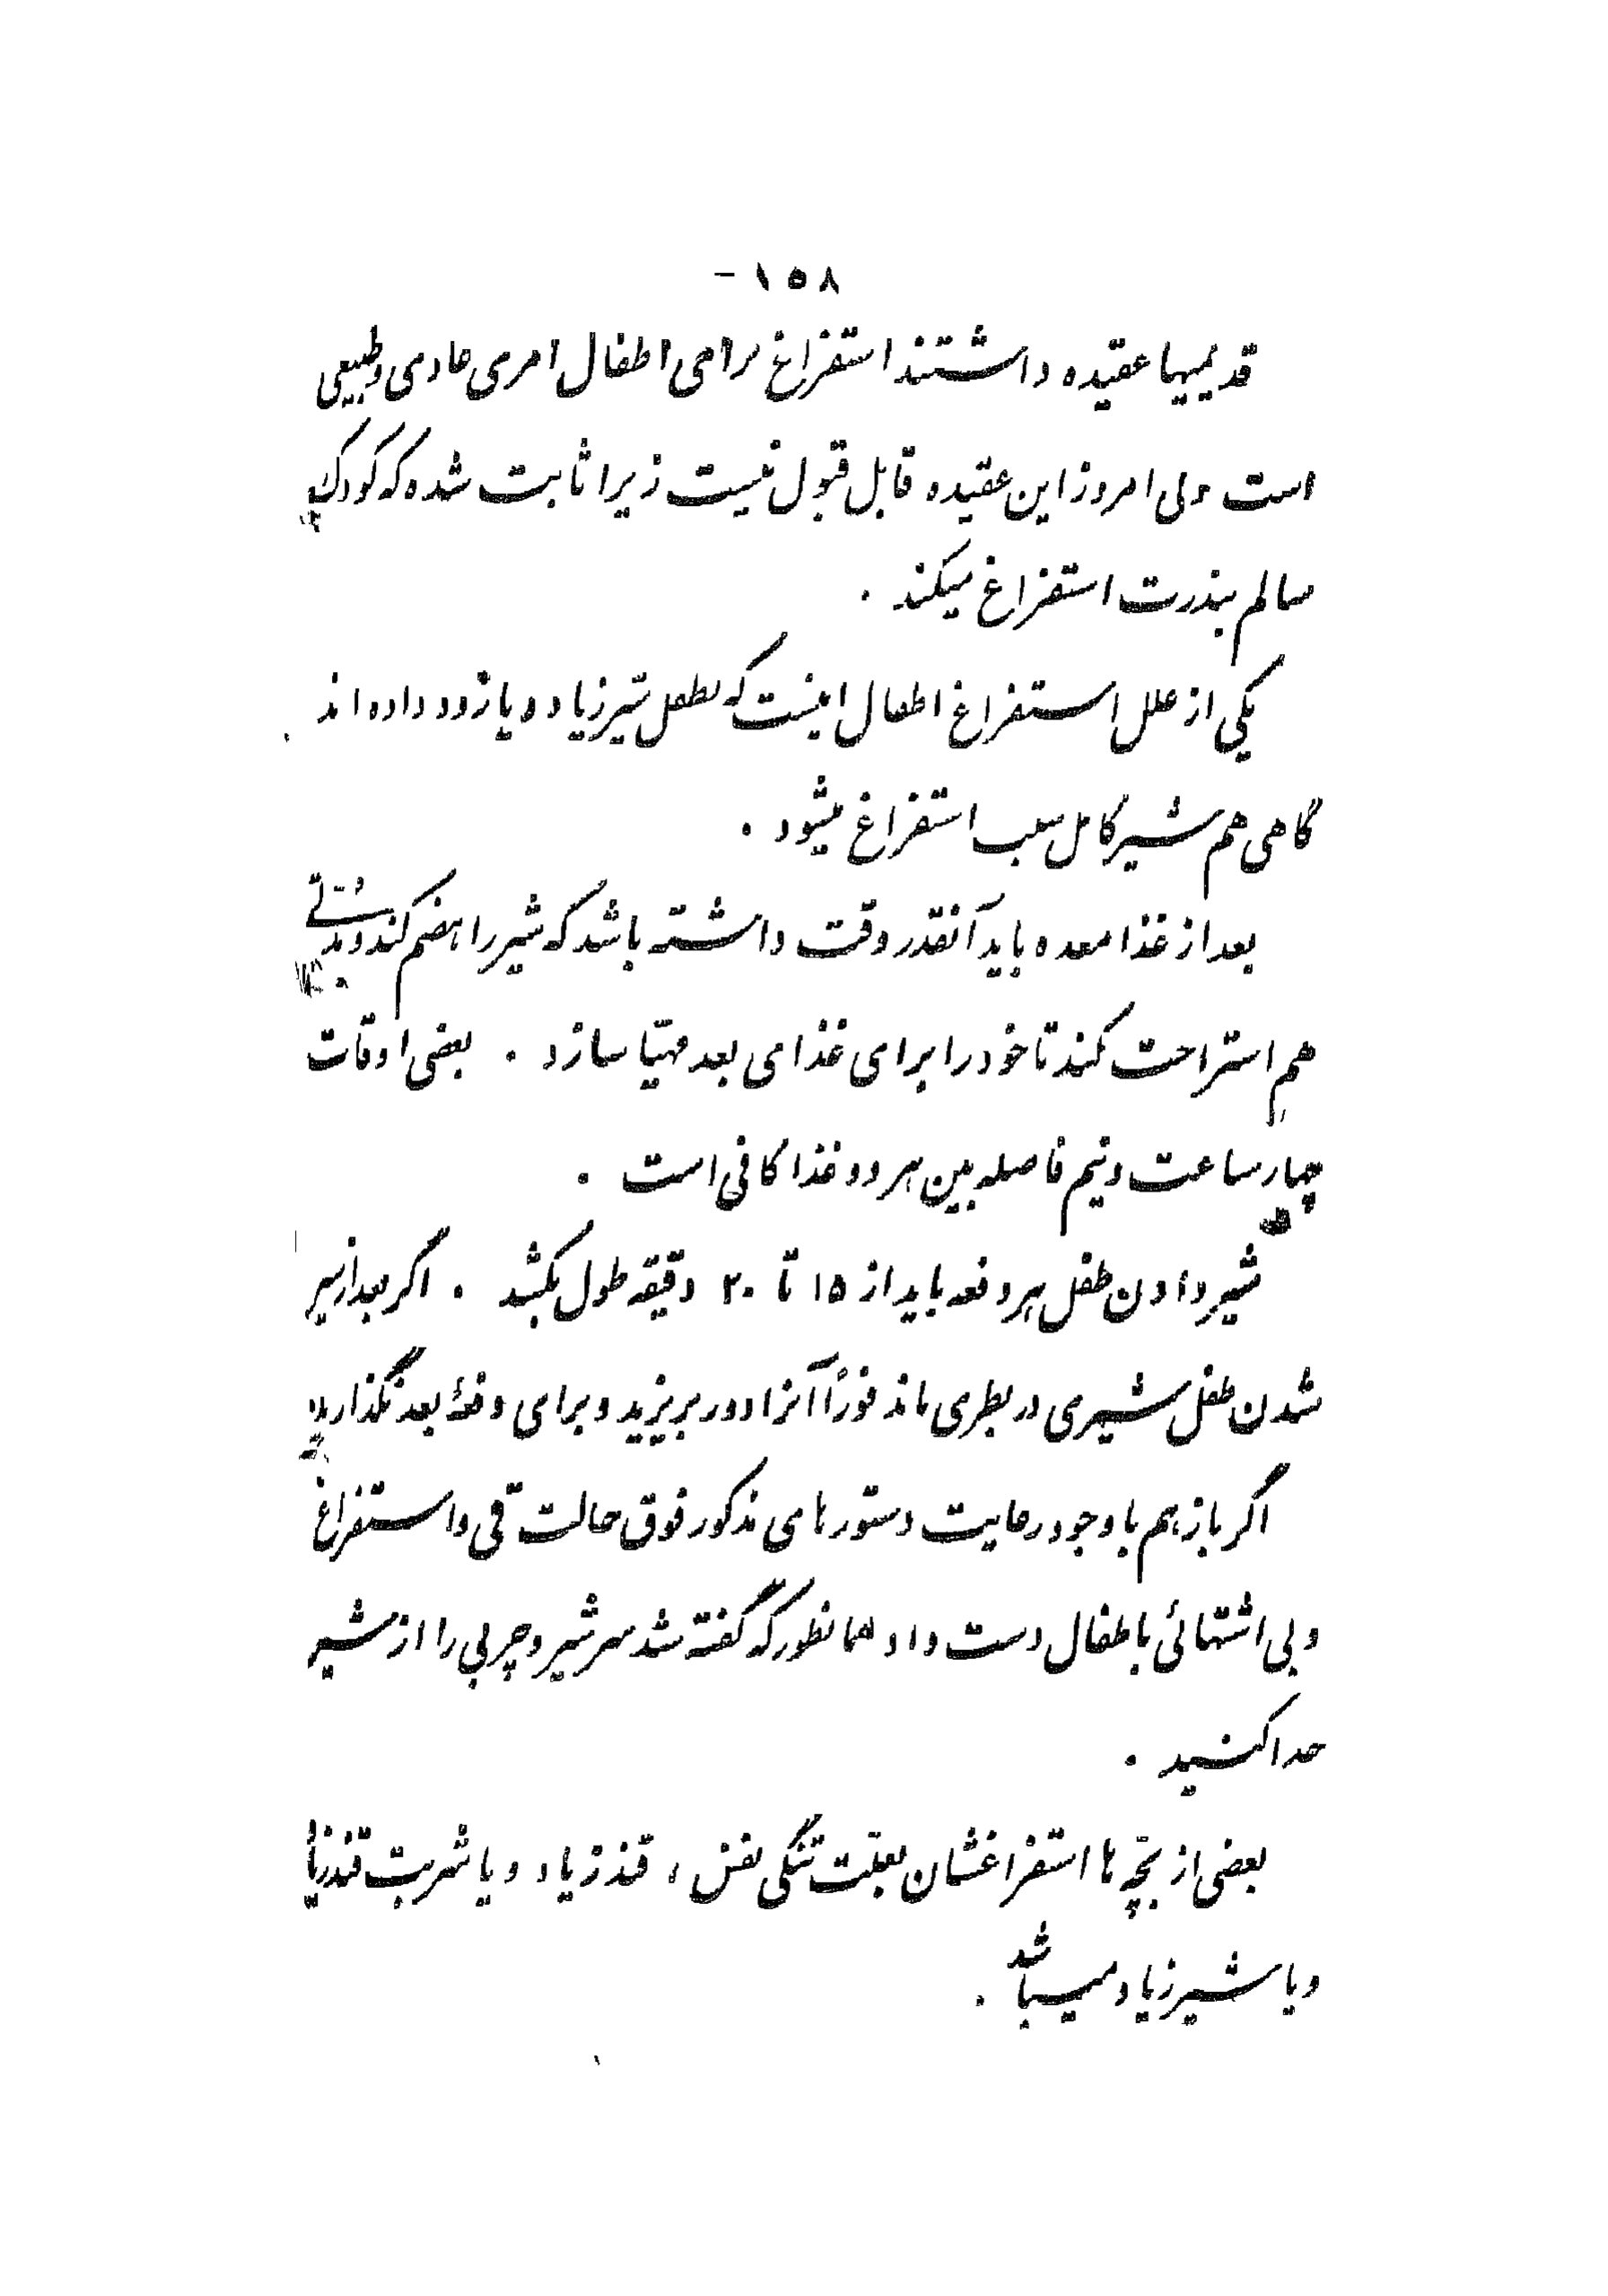 ۱۵۸ -
قدیمیها عقیده داشتند استفراغ برای اطفال امری عادی و طبیعی
است ولی امروز این عقیده قابل قبول نیست زیرا ثابت شده که کودک
سالم بندرت استفراغ میکند .
یکی از علل استفراغ اطفال اینست که بطفل شیر زیاد و یا زود داده اند
گاهی هم شیر کامل سبب استفراغ میشود .
بعد از غذا معده باید آنقدر وقت داشته باشد که شیر را هضم کند و مدتی
هم استراحت کند تا خود را برای غذای بعد مهیّا سازد . بعضی اوقات
چهار ساعت و نیم فاصله بین هر دو غذا کافی است .
شیر دادن طفل هر دفعه باید از ۱۵ تا ۲۰ دقیقه طول بکشد . اگر بعد از سیر
شدن طفل شیری در بطری ماند فوراً آنرا دور بریزید و برای دفعهٔ بعد نگذارید
اگر باز هم با وجود رعایت دستورهای مذکور فوق حالت قی و استفراغ
و بی اشتهائی باطفال دست داد همانطور که گفته شد سر شیر و چربی را از شیر
جدا کنید .
بعضی از بچّه ها استفراغشان بعلّت تنگی نفس ، قند زیاد و یا شربت قند زیاد
و یا شیر زیاد میباشد .